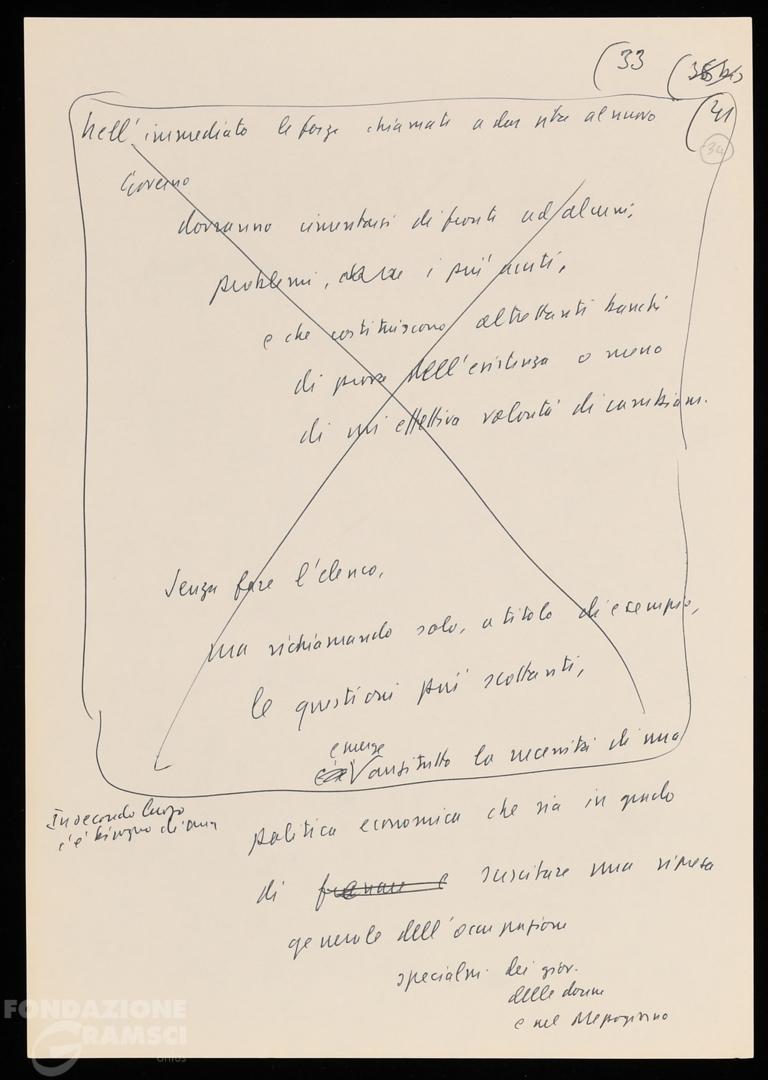 (33
(41
34
nell'immediato le forze chiamate a dar vita al nuovo
Governo
dovranno cimentarsi di fronte ad alcuni,
problemi, i più acuti,
e che costituiscono altrettanti banchi
di prova dell'esistenza o meno
di un'effettiva volontà di cambiam.
Senza fare l'elenco,
ma richiamando solo, a titolo di esempio,
le questioni più scottanti,
emerge
anzitutto la necessità di una
In secondo luogo
c'è bisogno di una
politica economica che sia in grado
di frenare e suscitare una ripresa
generale dell'occupazione
specialm. dei giov.
delle donne
e nel Mezzogiorno
FONDAZIONE
GRAMSCI
onlus